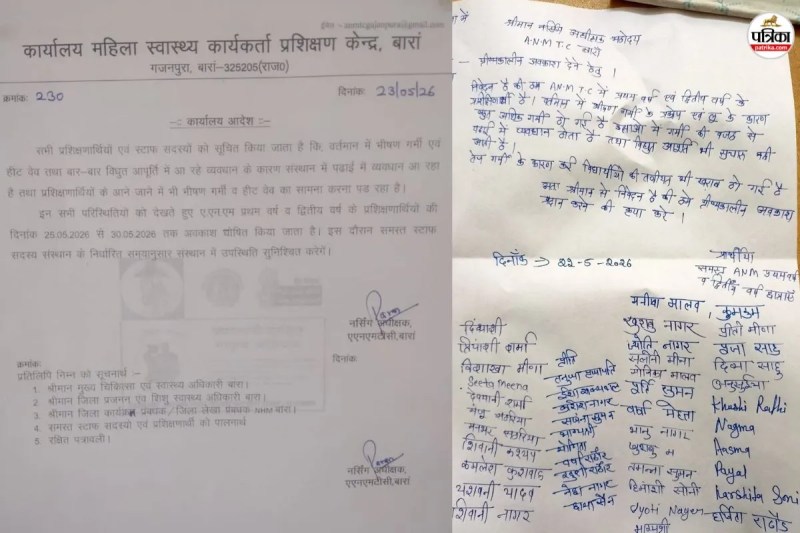 कार्यालय महिला स्वास्थ्य कार्यकर्ता प्रशिक्षण केन्द्र, बारां
गजनपुरा, बारां-325205(राज0)
क्रमांक: 230
दिनांक: 23/05/26
-:: कार्यालय आदेश ::-
सभी प्रशिक्षणार्थियों एवं स्टाफ सदस्यों को सूचित किया जाता है कि, वर्तमान में भीषण गर्मी एवं
हीट वेव तथा बार-बार विधुत आपूर्ति में आ रहे व्यवधान के कारण संस्थान में पढाई में व्यवधान आ रहा
है तथा प्रशिक्षणार्थियों के आने जाने में भी भीषण गर्मी व हीट वेव का सामना करना पड रहा है।
इन सभी परिस्थितियों को देखते हुए ए.एन.एम प्रथम वर्ष व द्वितीय वर्ष के प्रशिक्षणार्थियों की
दिनांक 25.05.2026 से 30.05.2026 तक अवकाश घोषित किया जाता है। इस दौरान समस्त स्टाफ
सदस्य संस्थान के निर्धारित समयानुसार संस्थान में उपस्थिति सुनिश्चित करेगें।
नर्सिंग अधीक्षक,
एएनएमटीसी,बारां
क्रमांक:
दिनांक:
प्रतिलिपि निम्न को सूचनार्थ -
1. श्रीमान मुख्य चिकित्सा एवं स्वास्थ्य अधिकारी बारा।
2. श्रीमान जिला प्रजनन एंव शिशु स्वास्थ्य अधिकारी बारा।
3. श्रीमान जिला कार्यक्रम प्रबंधक/जिला लेखा प्रबंधक NHM बारां।
4. समस्त स्टाफ सदस्यो एवं प्रशिक्षणार्थी को पालनार्थ
5. रक्षित पत्रावली।
नर्सिंग अधीक्षक,
एएनएमटीसी,बारां
पत्रिका
patrika.com
में
श्रीमान नर्सिंग अधीक्षक महोदय
A.N.M.T.C बारां
ग्रीष्मकालीन अवकाश देने हेतु।
निवेदन है की हम A.N.M.T.C में प्रथम वर्ष एवं द्वितीय वर्ष के
है। वर्तमान में भीषण गर्मी के प्रकोप एवं लू के कारण
बहुत अधिक गर्मी हो गई है कक्षाओं में गर्मी की वजह से
पढाई में व्यवधान होता है तथा विद्युत आपूर्ति भी सुचारू नहीं
तेज गर्मी के कारण कई विद्यार्थीयों की तबीयत भी खराब हो गई है
अतः श्रीमान से निवेदन है की हमें ग्रीष्मकालीन अवकाश
प्रदान करने की कृपा करे।
दिनाँक → 22-5-2026
प्रार्थीया
समस्त ANM प्रथम वर्ष
व द्वितीय वर्ष छात्राऐं
मनीषा मालव, कुमकुम
दिव्यांशी
खुशबु नागर
प्रीती मीणा
त्रिपाशी शर्मा
ज्योति नागर
पूजा साहु
विशाखा मीणा
प्रीति
सलोनी मीना
दिव्या साहु
Seeta Meena
Khushi Rathi
वर्षा मेहता
Nagma
भानु नागर
Aasma
शिवानी कश्यप
Payal
कमलेश कुशवाह
तमन्ना सुमन
Harshita Soni
यशवनी यादव
नेहा नागर
हिमांशी सोनी
शिवानी नागर
Jyoti Nagar
हर्षिता राठौड